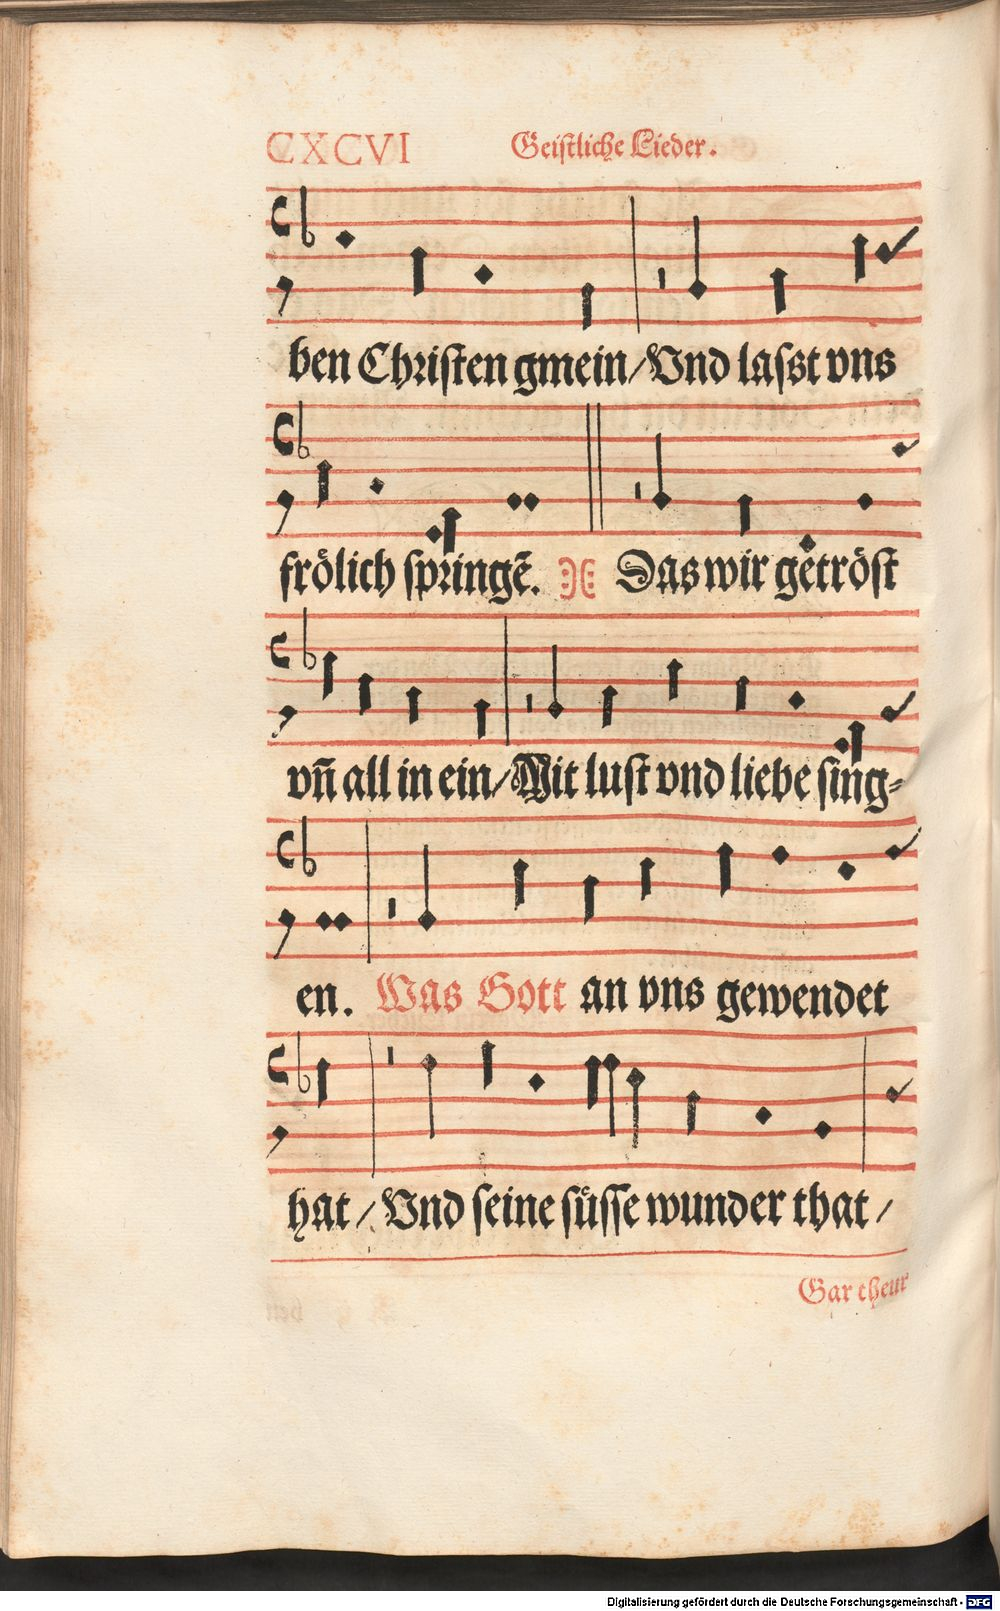 CXCVI Geiſtliche Lieder.
ben Chriſten gmein/ Vnd laſst vns
frölich ſpringẽ. Das wir getröſt
vñ all in ein/ Mit luſt vnd liebe ſing⸗
en. Was Gott an vns gewendet
hat/ Vnd ſeine ſüſſe wunder that/
Gar theur
Digitalisierung gefördert durch die Deutsche Forschungsgemeinschaft - DFG